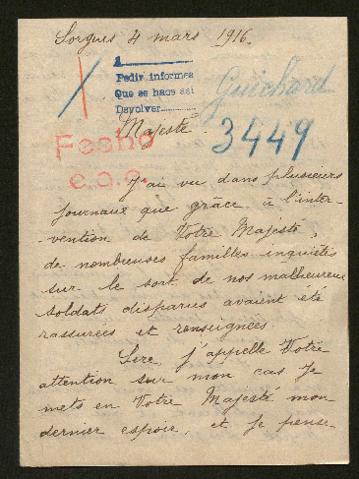 Sorgues 4 mars 1916.
1
Pedir informes
Que se hace así
Devolver
Guichard
3449
Fecho
Majesté.
J'ai vu dans plusieurs
journaux que grâce à l'inter-
vention de Votre Majesté,
de nombreuses familles inquiètes
sur le sort de nos malheureux
soldats disparus avaient été
rassurées et renseignées
Sire j'appelle Votre
attention sur mon cas Je
mets en Votre Majesté mon
dernier espoir, et je pense